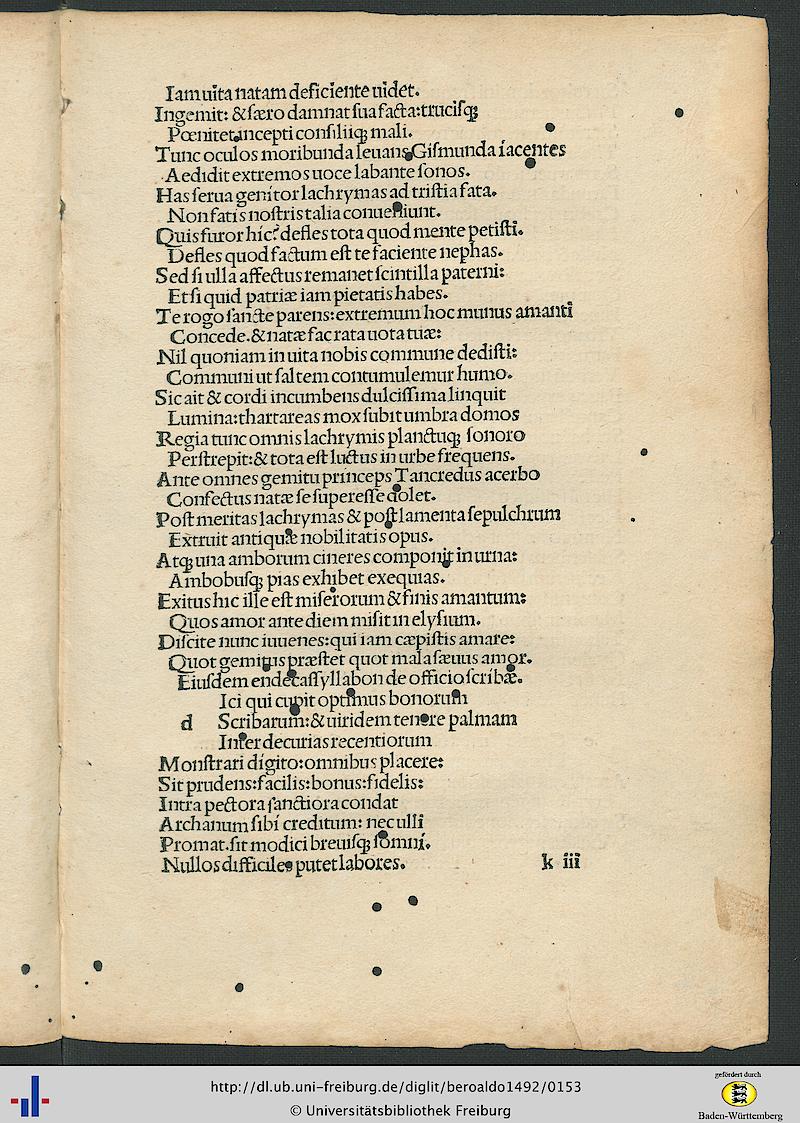 Iam uita natam deficiente uidet.
Ingemit: & særo damnat sua facta: trucisq;
Pœnitet incepti consiliiq; mali.
Tunc oculos moribunda leuans Gismunda iacentes
Aedidit extremos uoce labante sonos.
Has serua genitor lachrymas ad tristia fata.
Non fatis nostris talia conueniunt.
Quis furor hic? defles tota quod mente petisti.
Defles quod factum est te faciente nephas.
Sed si ulla affectus remanet scintilla paterni:
Et si quid patriæ iam pietatis habes.
Te rogo sancte parens: extremum hoc munus amanti
Concede. & natæ fac rata uota tuæ:
Nil quoniam in uita nobis commune dedisti:
Communi ut saltem contumulemur humo.
Sic ait & cordi incumbens dulcissima linquit
Lumina: thartareas mox subit umbra domos
Regia tunc omnis lachrymis planctuq; sonoro
Perstrepit: & tota est luctus in urbe frequens.
Ante omnes gemitu princeps Tancredus acerbo
Confectus natæ se superesse dolet.
Post meritas lachrymas & post lamenta sepulchrum
Extruit antiquæ nobilitatis opus.
Atq; una amborum cineres componit in urna:
Ambobusq; pias exhibet exequias.
Exitus hic ille est miserorum & finis amantum:
Quos amor ante diem misit in elysium.
Discite nunc iuuenes: qui iam cæpistis amare:
Quot gemitus præstet quot mala sæuus amor.
Eiusdem endecassyllabon de officio scribæ.
Ici qui cupit optimus bonorum
d Scribarum: & uiridem tenere palmam
Inter decurias recentiorum
Monstrari digito: omnibus placere:
Sit prudens: facilis: bonus: fidelis:
Intra pectora sanctiora condat
Archanum sibi creditum: nec ulli
Promat. sit modici breuisq; somni.
Nullos difficiles putet labores.
k iii
http://dl.ub.uni-freiburg.de/diglit/beroaldo1492/0153
© Universitätsbibliothek Freiburg
gefördert durch
Baden-Württemberg